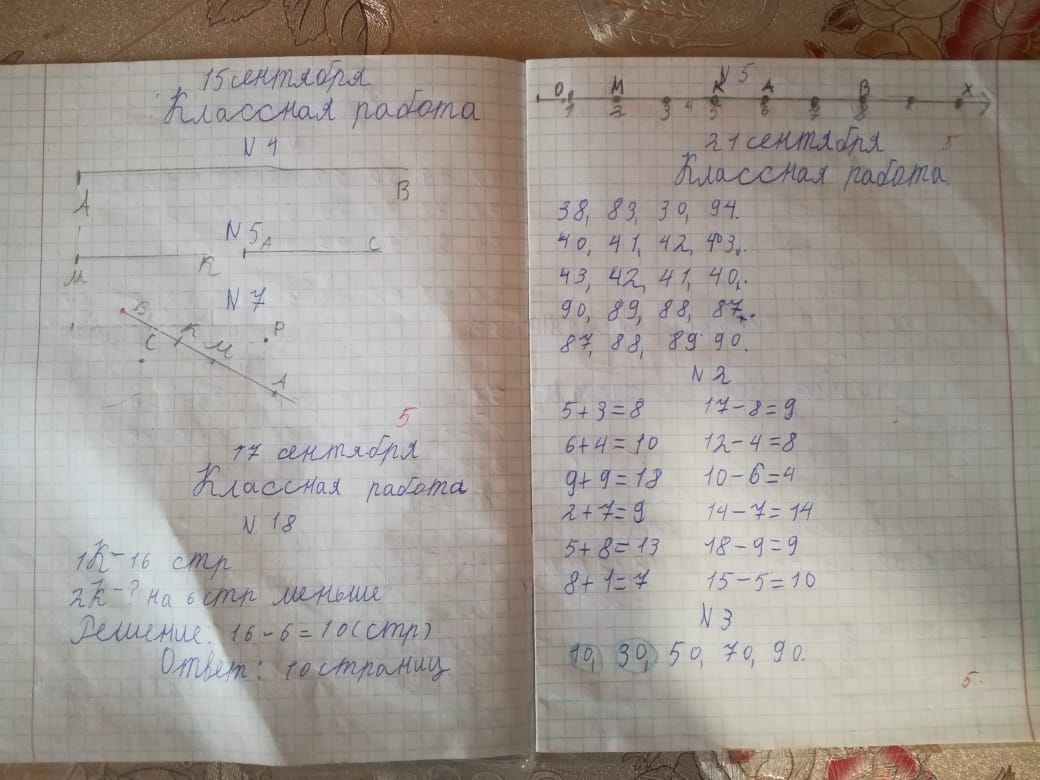 15 сентября
Классная работа
N 4
А В
N 5
М К А С
N 7
В
С К М Р
А
5
17 сентября
Классная работа
N 18
1К - 16 стр
2К - ? на 6 стр меньше
Решение. 16 - 6 = 10 (стр)
Ответ: 10 страниц
N 5
О М К А В Х
1 2 3 4 5 6 7 8
5
21 сентября
Классная работа.
38, 83, 30, 94.
40, 41, 42, 43.
43, 42, 41, 40.
90, 89, 88, 87.
87, 88, 89 90.
N 2
5 + 3 = 8 17 - 8 = 9
6 + 4 = 10 12 - 4 = 8
9 + 9 = 18 10 - 6 = 4
2 + 7 = 9 14 - 7 = 14
5 + 8 = 13 18 - 9 = 9
8 + 1 = 7 15 - 5 = 10
N 3
10, 30, 50, 70, 90.
5